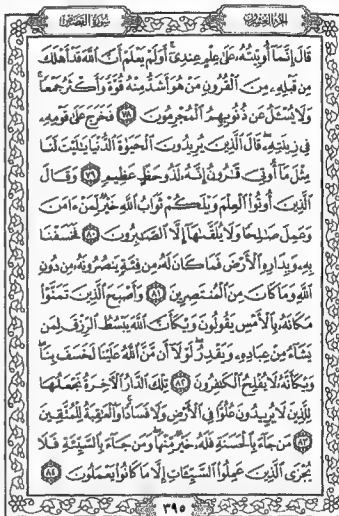 الجزء العشرون سورة القصص
قَالَ إِنَّمَآ أُوتِيتُهُۥ عَلَىٰ عِلْمٍ عِندِىٓ أَوَلَمْ يَعْلَمْ أَنَّ ٱللَّهَ قَدْ أَهْلَكَ
مِن قَبْلِهِۦ مِنَ ٱلْقُرُونِ مَنْ هُوَ أَشَدُّ مِنْهُ قُوَّةً وَأَكْثَرُ جَمْعًا
وَلَا يُسْـَٔلُ عَن ذُنُوبِهِمُ ٱلْمُجْرِمُونَ ٧٨ فَخَرَجَ عَلَىٰ قَوْمِهِۦ
فِى زِينَتِهِۦ قَالَ ٱلَّذِينَ يُرِيدُونَ ٱلْحَيَوٰةَ ٱلدُّنْيَا يَـٰلَيْتَ لَنَا
مِثْلَ مَآ أُوتِىَ قَـٰرُونُ إِنَّهُۥ لَذُو حَظٍّ عَظِيمٍ ٧٩ وَقَالَ
ٱلَّذِينَ أُوتُوا۟ ٱلْعِلْمَ وَيْلَكُمْ ثَوَابُ ٱللَّهِ خَيْرٌ لِّمَنْ ءَامَنَ
وَعَمِلَ صَـٰلِحًا وَلَا يُلَقَّىٰهَآ إِلَّا ٱلصَّـٰبِرُونَ ٨٠ فَخَسَفْنَا
بِهِۦ وَبِدَارِهِ ٱلْأَرْضَ فَمَا كَانَ لَهُۥ مِن فِئَةٍ يَنصُرُونَهُۥ مِن دُونِ
ٱللَّهِ وَمَا كَانَ مِنَ ٱلْمُنتَصِرِينَ ٨١ وَأَصْبَحَ ٱلَّذِينَ تَمَنَّوْا۟
مَكَانَهُۥ بِٱلْأَمْسِ يَقُولُونَ وَيْكَأَنَّ ٱللَّهَ يَبْسُطُ ٱلرِّزْقَ لِمَن
يَشَآءُ مِنْ عِبَادِهِۦ وَيَقْدِرُ لَوْلَآ أَن مَّنَّ ٱللَّهُ عَلَيْنَا لَخَسَفَ بِنَا
وَيْكَأَنَّهُۥ لَا يُفْلِحُ ٱلْكَـٰفِرُونَ ٨٢ تِلْكَ ٱلدَّارُ ٱلْـَٔاخِرَةُ نَجْعَلُهَا
لِلَّذِينَ لَا يُرِيدُونَ عُلُوًّا فِى ٱلْأَرْضِ وَلَا فَسَادًا وَٱلْعَـٰقِبَةُ لِلْمُتَّقِينَ
٨٣ مَن جَآءَ بِٱلْحَسَنَةِ فَلَهُۥ خَيْرٌ مِّنْهَا وَمَن جَآءَ بِٱلسَّيِّئَةِ فَلَا
يُجْزَى ٱلَّذِينَ عَمِلُوا۟ ٱلسَّيِّـَٔاتِ إِلَّا مَا كَانُوا۟ يَعْمَلُونَ ٨٤
٣٩٥